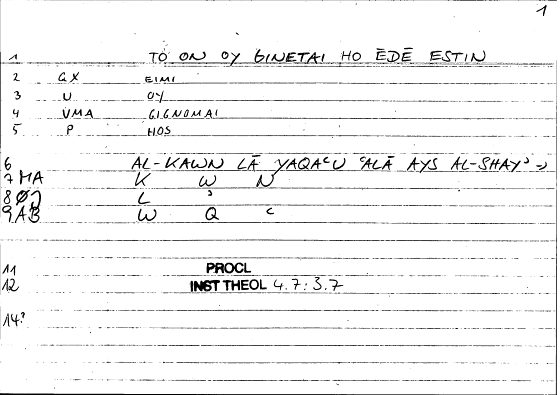 1
1 TO ON OY GINETAI HO ĒDĒ ESTIN
2 GX EIMI
3 U OY
4 VMA GIGNOMAI
5 P HOS
6 AL-KAWN LĀ YAQAʿU ʿALĀ AYS AL-SHAYʾ
7 MA K W N
8 L ʾ
9 AB W Q ʿ
11 PROCL
12 INST THEOL 4.7: 3.7
14?